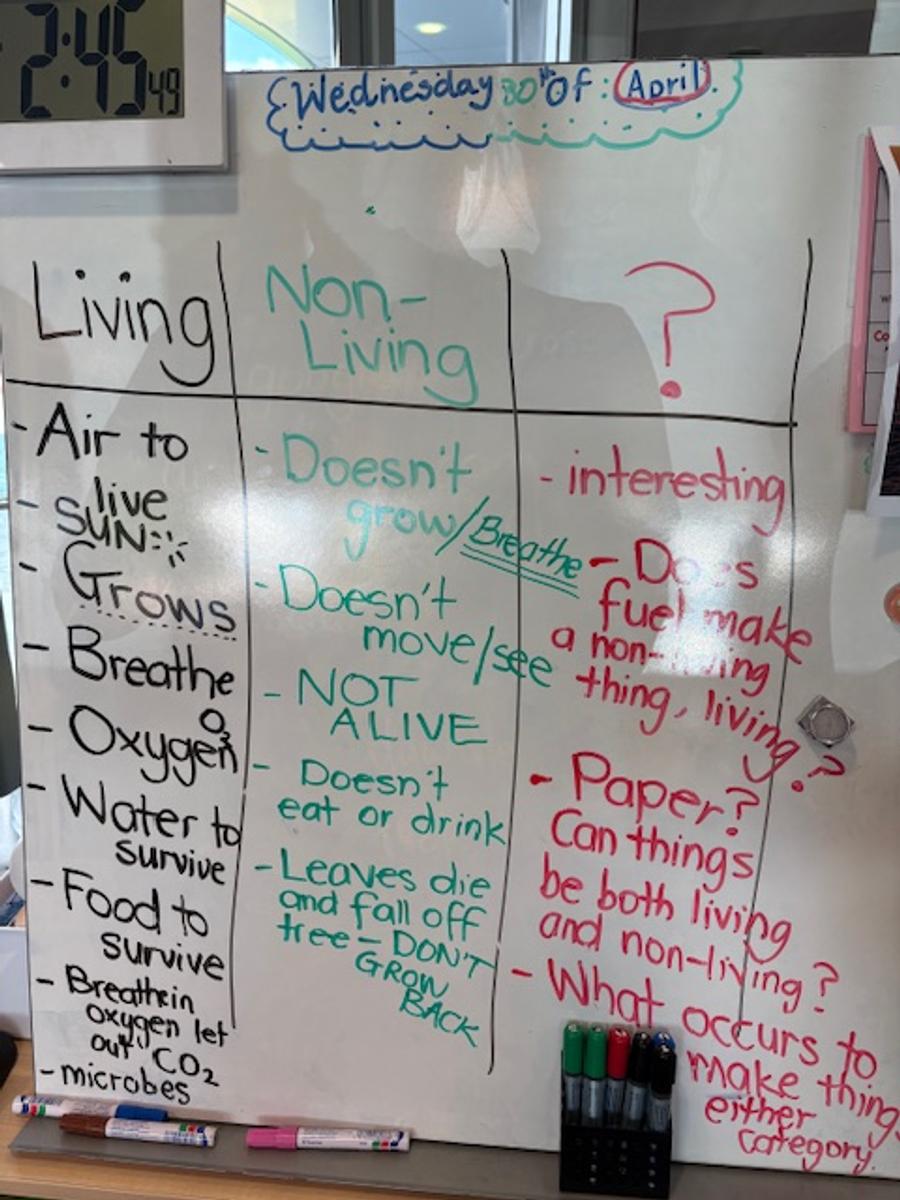 2:45 49
Wednesday 30th Of : April.
Living
Non-
Living
?
- Air to
live
- SUN
- Grows
- Breathe
- Oxygen O2
- Water to
survive
- Food to
survive
- Breathein
oxygen let
out CO2
- microbes
- Doesn't
grow/Breathe
- Doesn't
move/see
- NOT
ALIVE
- Doesn't
eat or drink
- Leaves die
and fall off
tree - DON'T
GROW
BACK
- interesting
- Does
fuel make
a non-living
thing, living?
- Paper?
Can things
be both living
and non-living?
- What occurs to
make things
either
category.